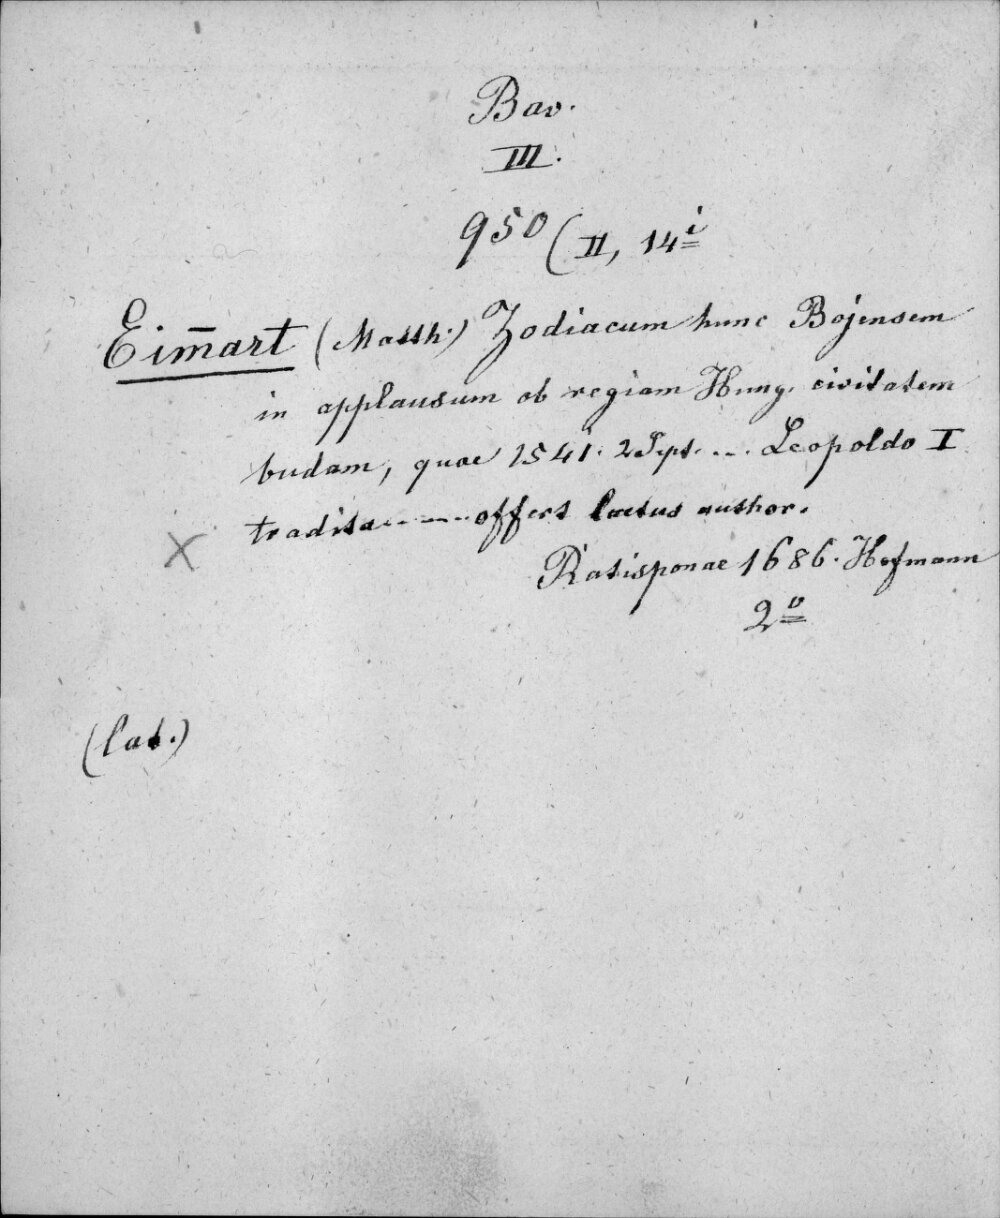 Bav.
III.
950 (II, 14i
Eim̄art (Matth.) Zodiacum hunc Bojensem
in applausum ob regiam Hung. civitatem
budam, quae 1541. 2 Spt. ... Leopoldo I
tradita ...... offert laetus author.
Ratisponae 1686. Hofmann
2o
X
(lat.)